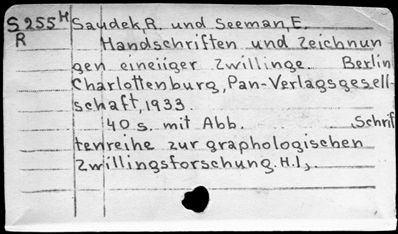 S 255 H Saudek, R. und Seeman, E.
R Handschriften und Zeichnun
gen eineiiger Zwillinge. Berlin
Charlottenburg, Pan-Verlagsgesell-
schaft, 1933.
40 s. mit Abb. Schrif
tenreihe zur graphologischen
Zwillingsforschung. H.1,.